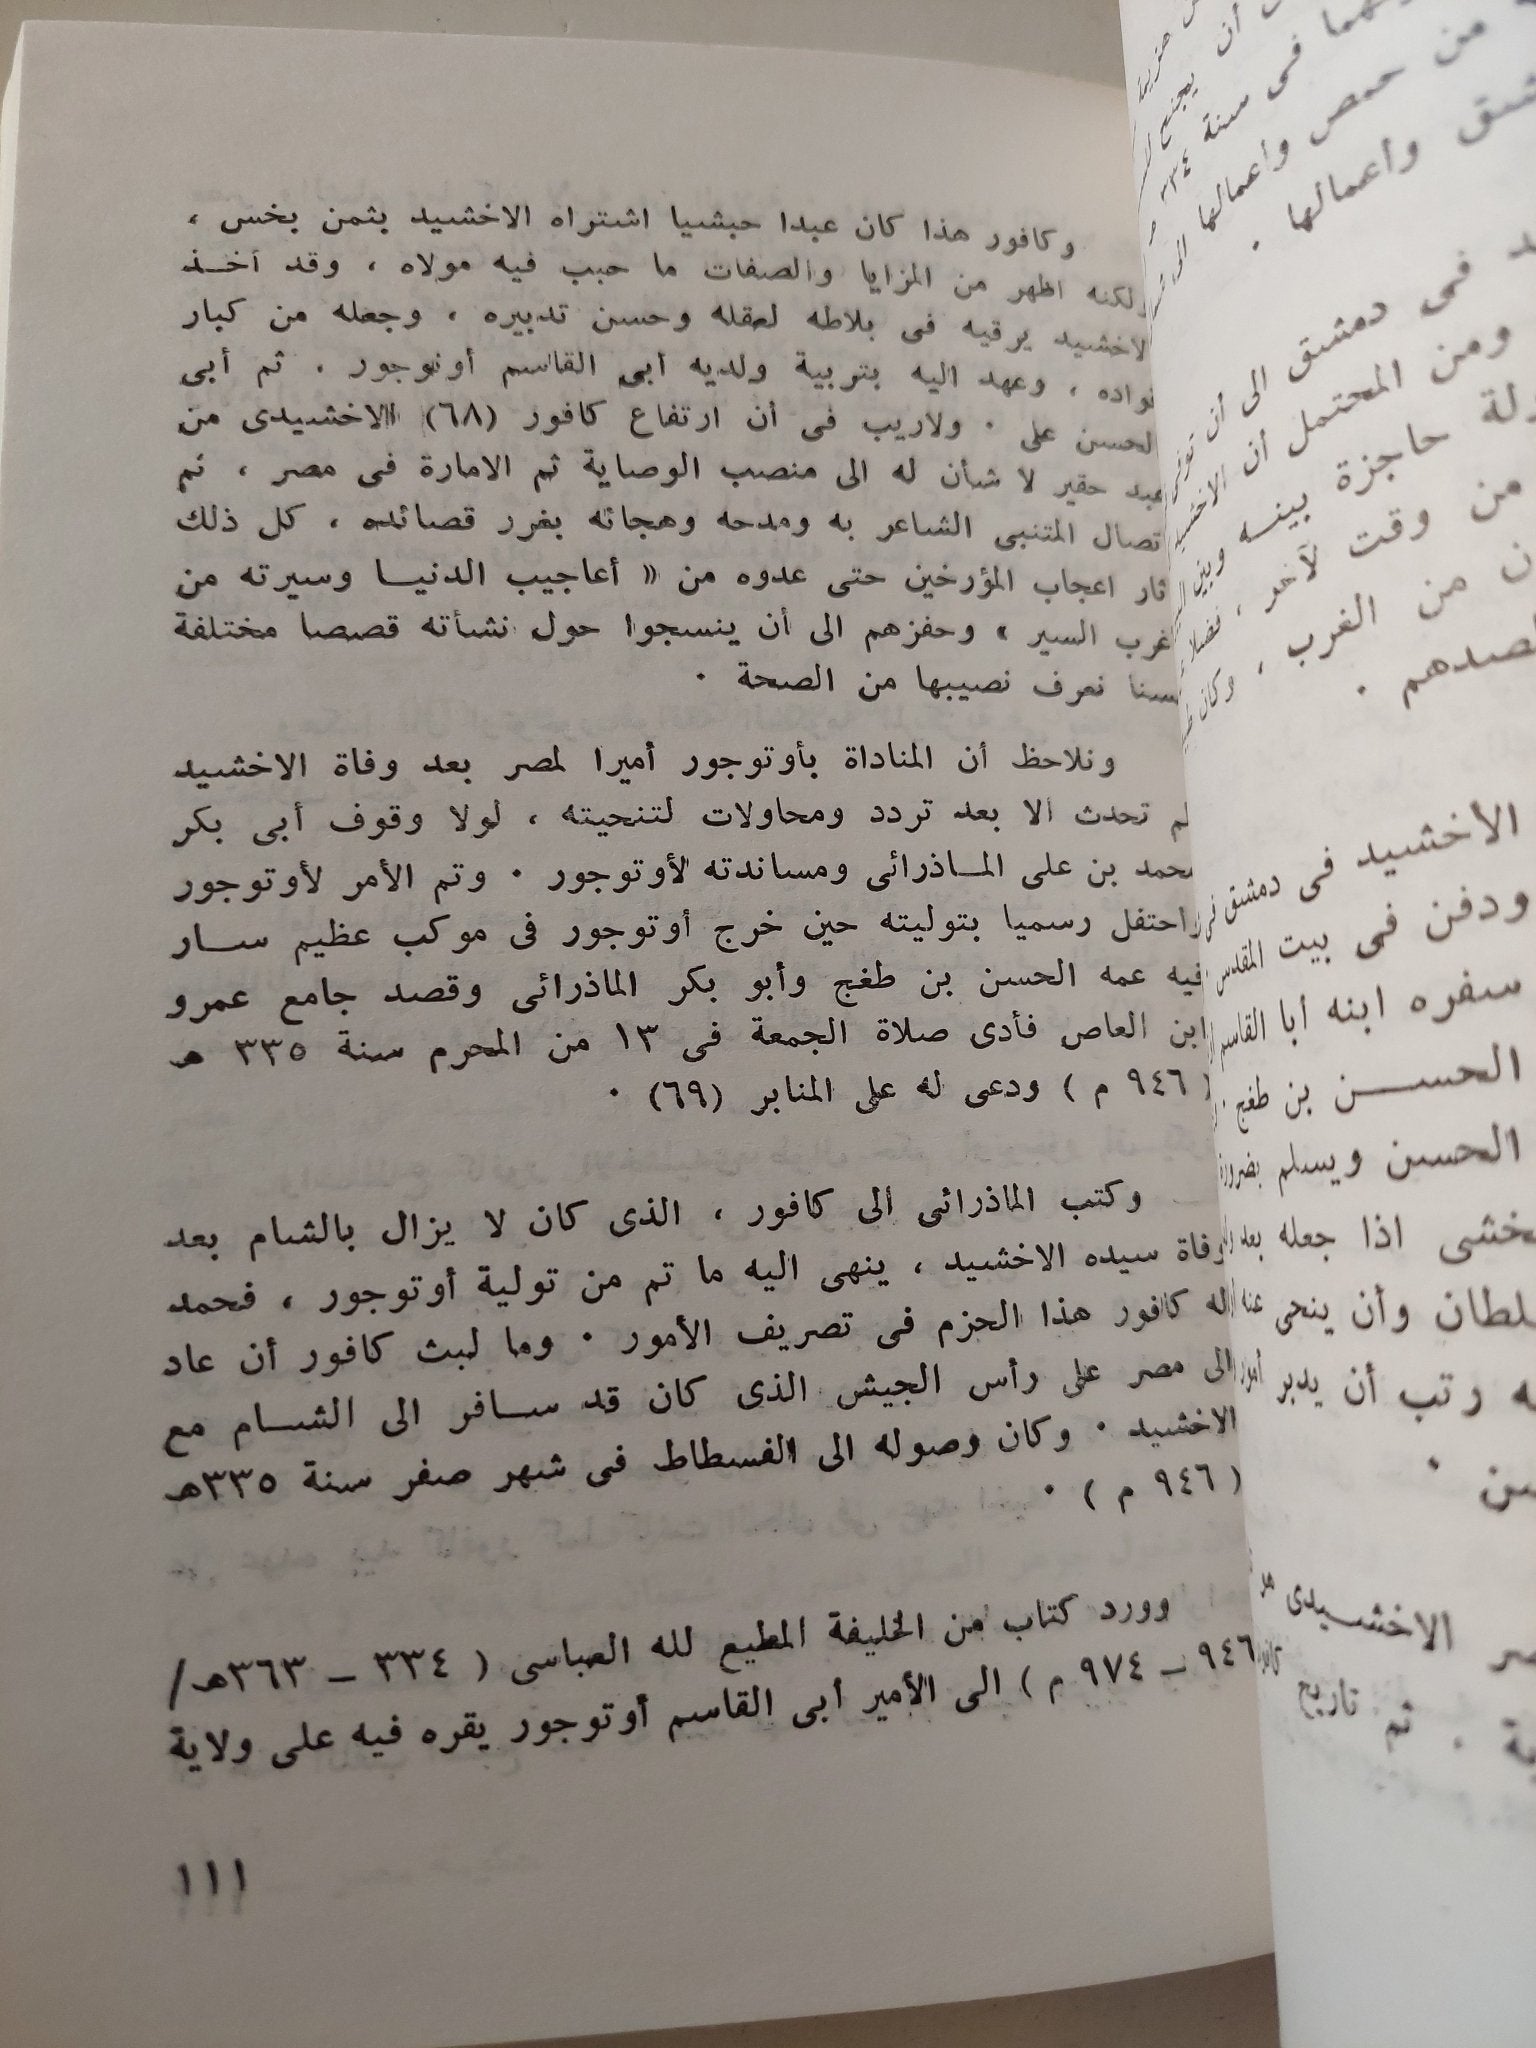 وكافور هذا كان عبدا حبشيا اشتراه الاخشيد بثمن بخس ،
ولكنه اظهر من المزايا والصفات ما حبب فيه مولاه ، وقد أخذ
الاخشيد يرقيه فى بلاطه لعقله وحسن تدبيره ، وجعله من كبار
قواده ، وعهد اليه بتربية ولديه أبى القاسم أونوجور . ثم أبى
الحسن على . ولاريب فى أن ارتفاع كافور (٦٨) الاخشيدى من
عبد حقير لا شأن له الى منصب الوصاية ثم الامارة فى مصر ، ثم
اتصال المتنبى الشاعر به ومدحه وهجائه بغرر قصائده ، كل ذلك
أثار اعجاب المؤرخين حتى عدوه من « أعاجيب الدنيا وسيرته من
أغرب السير » وحفزهم الى أن ينسجوا حول نشأته قصصا مختلفة
لسنا نعرف نصيبها من الصحة .
ونلاحظ أن المناداة بأوتوجور أميرا لمصر بعد وفاة الاخشيد
لم تحدث الا بعد تردد ومحاولات لتنحيته ، لولا وقوف أبى بكر
محمد بن على الماذرائى ومساندته لأوتوجور . وتم الأمر لأوتوجور
واحتفل رسميا بتوليته حين خرج أوتوجور فى موكب عظيم سار
فيه عمه الحسن بن طغج وأبو بكر الماذرائى وقصد جامع عمرو
ابن العاص فأدى صلاة الجمعة فى ١٣ من المحرم سنة ٣٣٥ هـ
( ٩٤٦ م ) ودعى له على المنابر (٦٩) .
وكتب الماذرائى الى كافور ، الذى كان لا يزال بالشام بعد
وفاة سيده الاخشيد ، ينهى اليه ما تم من تولية أوتوجور ، فحمد
له كافور هذا الحزم فى تصريف الأمور . وما لبث كافور أن عاد
الى مصر على رأس الجيش الذى كان قد سافر الى الشام مع
الاخشيد . وكان وصوله الى الفسطاط فى شهر صفر سنة ٣٣٥هـ
( ٩٤٦ م ) .
وورد كتاب من الخليفة المطيع لله العباسى ( ٣٣٤ – ٣٦٣هـ/
٩٤٦ – ٩٧٤ م ) الى الأمير أبى القاسم أوتوجور يقره فيه على ولاية
١١١
فى سنة ٣٣٤
من حمص وأعمالها
وأعمالها .
فى دمشق الى أن
ومن المحتمل أن
حاجزة بينه وبين
من وقت لآخر ،
من الغرب ، وكان
الاخشيد فى دمشق
ودفن فى بيت المقدس
سفره ابنه أبا القاسم
الحسن بن طغج
الحسن ويسلم
اذا جعله بعد
وأن ينحى عنه
رتب أن يدبر
الاخشيدى
ثم تاريخ